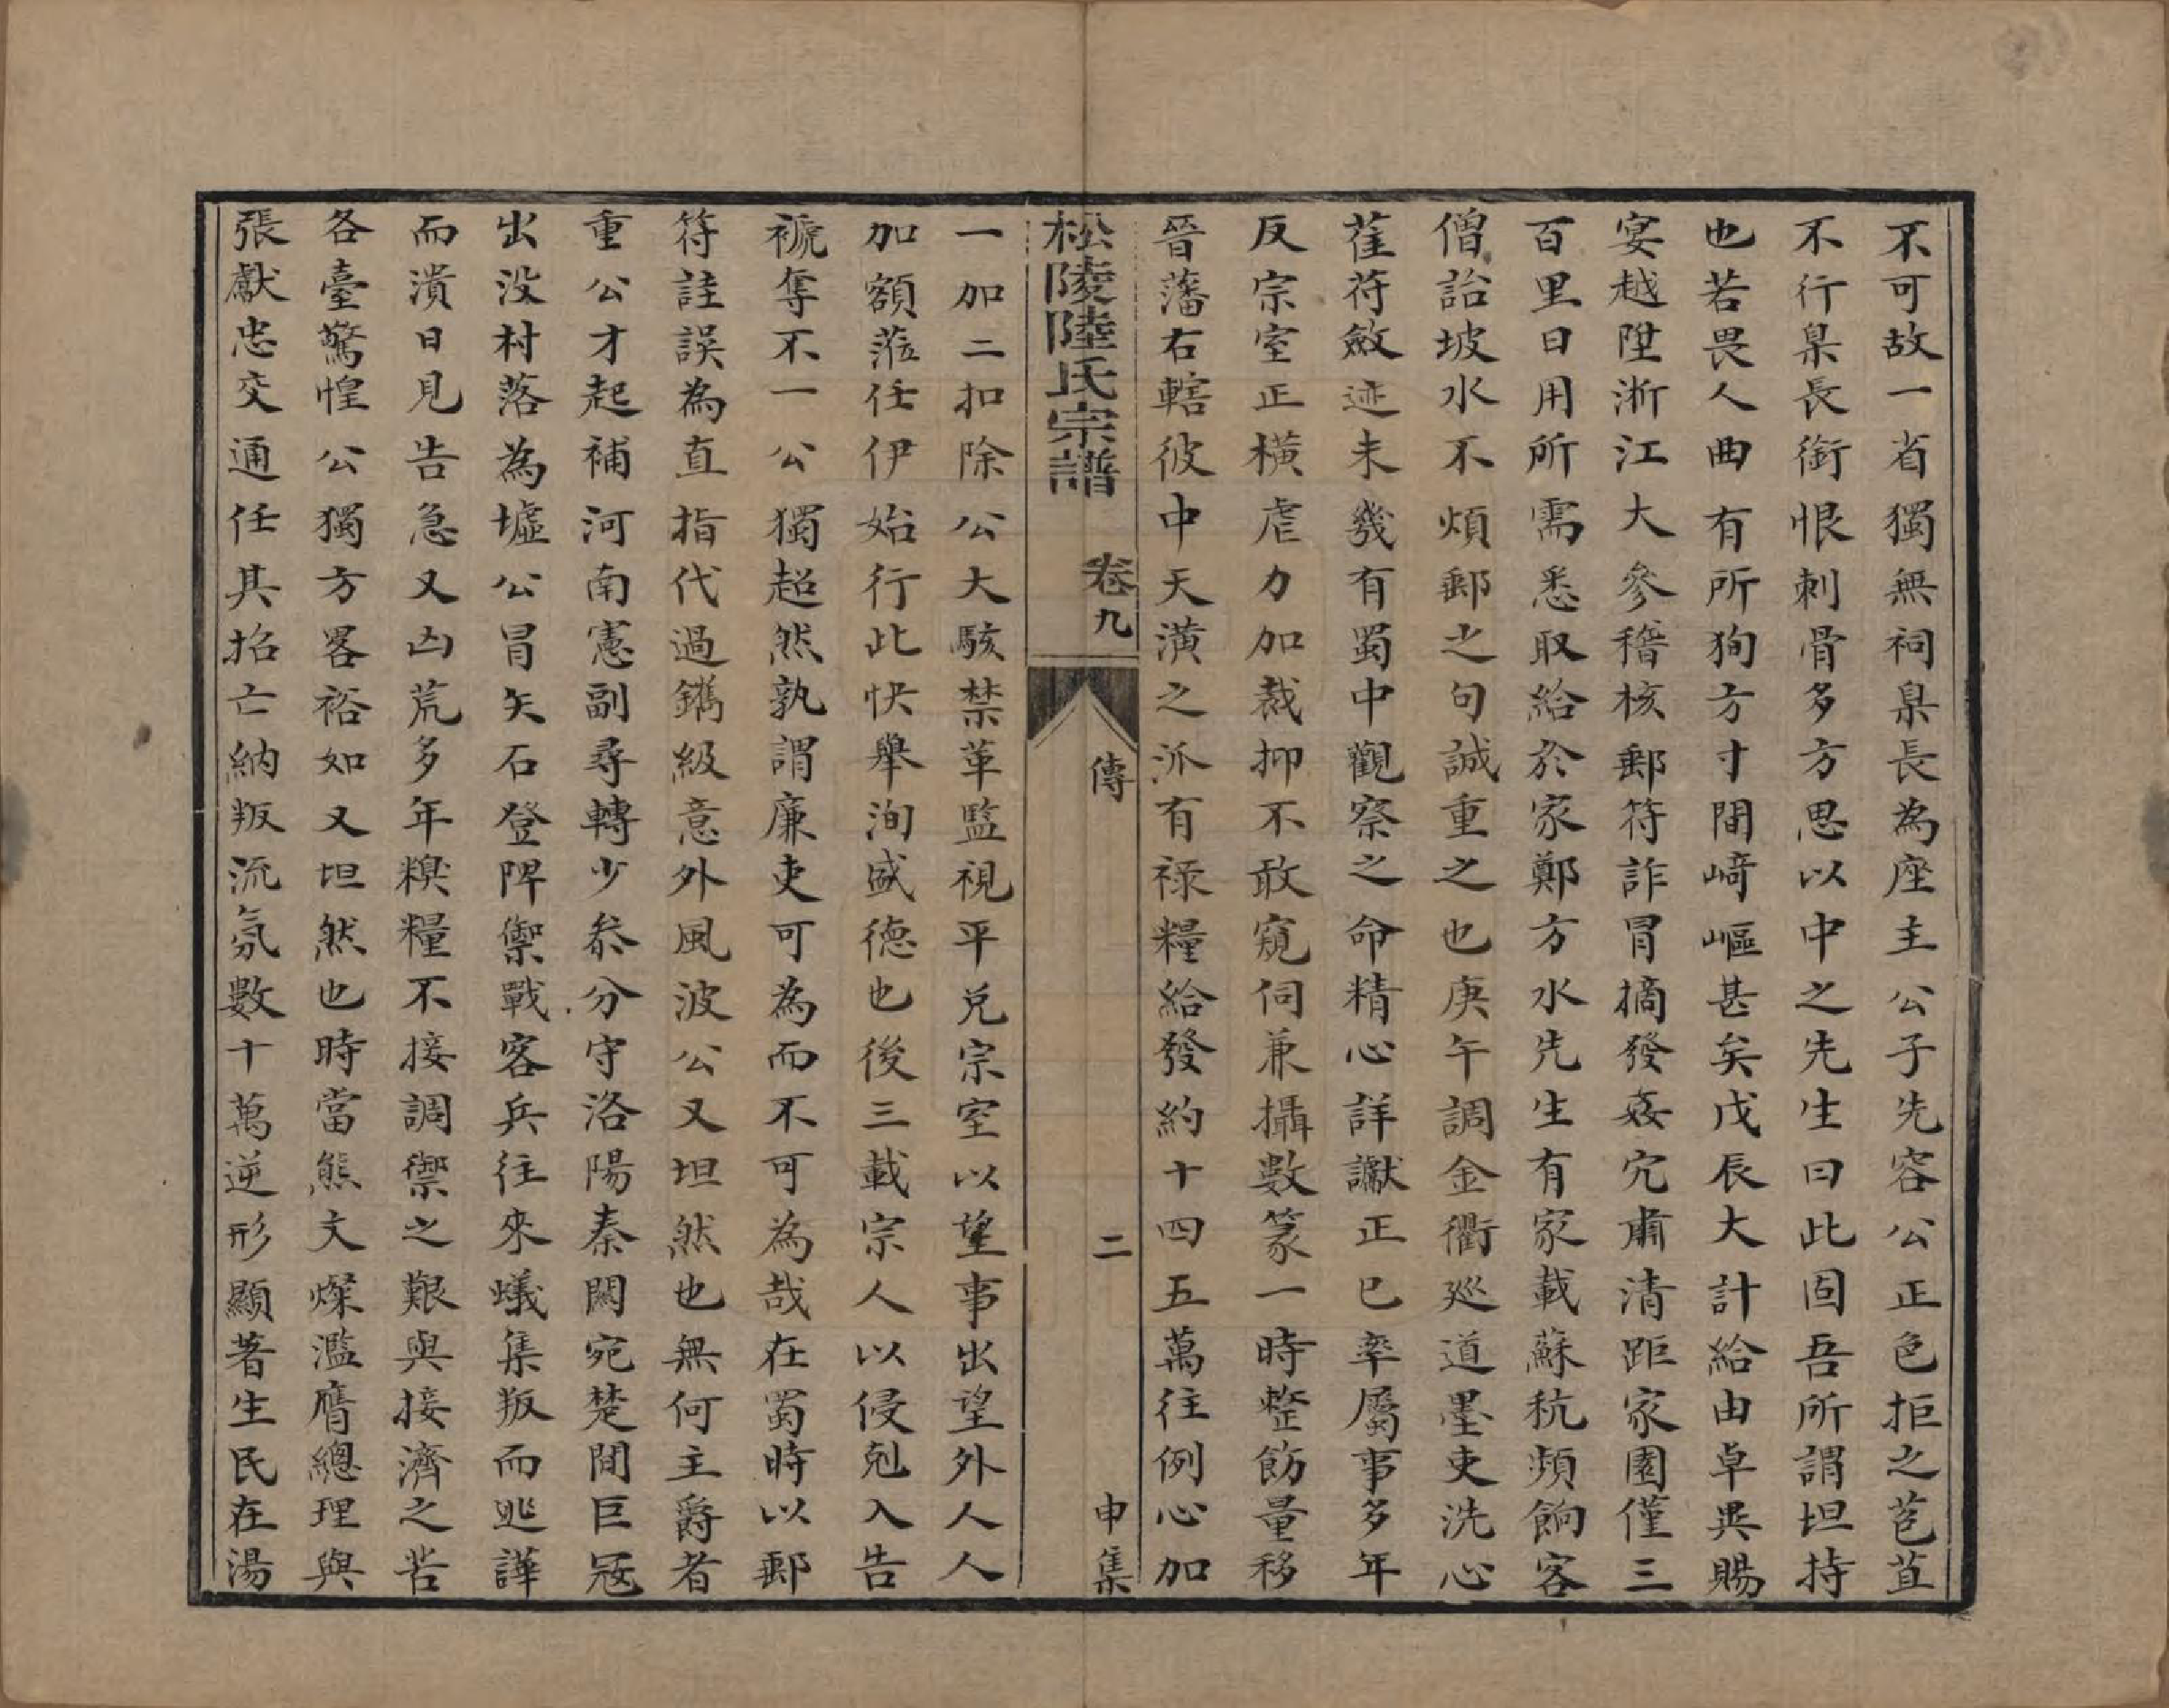 不可故一省獨無祠臬長為座主公子先容公正色拒之苞苴
不行臬長銜恨刺骨多方思以中之先生曰此固吾所謂坦持
也若畏人曲有所狥方寸間﨑嶇甚矣戊辰大計給由卓異賜
宴越陞浙江大參稽核郵符詐冒摘發姦宄肅清距家園僅三
百里日用所需悉取給於家鄭方水先生有家載蘇秔頻餉客
僧詒坡水不煩郵之句誠重之也庚午調金衢廵道墨吏洗心
萑苻斂迹未幾有蜀中觀察之命精心詳讞正巳率屬事多年
反宗室正橫虐力加裁抑不敢窺伺兼攝數篆一時整飭量移
晉藩右轄彼中天潢之派有祿糧給發約十四五萬往例心加
松陵陸氏宗譜　卷九　傳　二　申集
一加二扣除公大駭禁革監視平兌宗室以望事出望外人人
加額蒞任伊始行此快舉洵盛德也後三載宗人以侵剋入告
褫奪不一公獨超然孰謂廉吏可為而不可為哉在蜀時以郵
符詿誤為直指代過鐫級意外風波公又坦然也無何主爵者
重公才起補河南憲副尋轉少叅分守洛陽秦闕宛楚間巨寇
出没村落為墟公冒矢石登陴禦戰客兵往來蟻集叛而逃譁
而潰日見告急又凶荒多年糗糧不接調禦之艱與接濟之苦
各臺驚惶公獨方畧裕如又坦然也時當熊文燦濫膺總理與
張獻忠交通任其招亡納叛流氛數十萬逆形顯著生民在湯